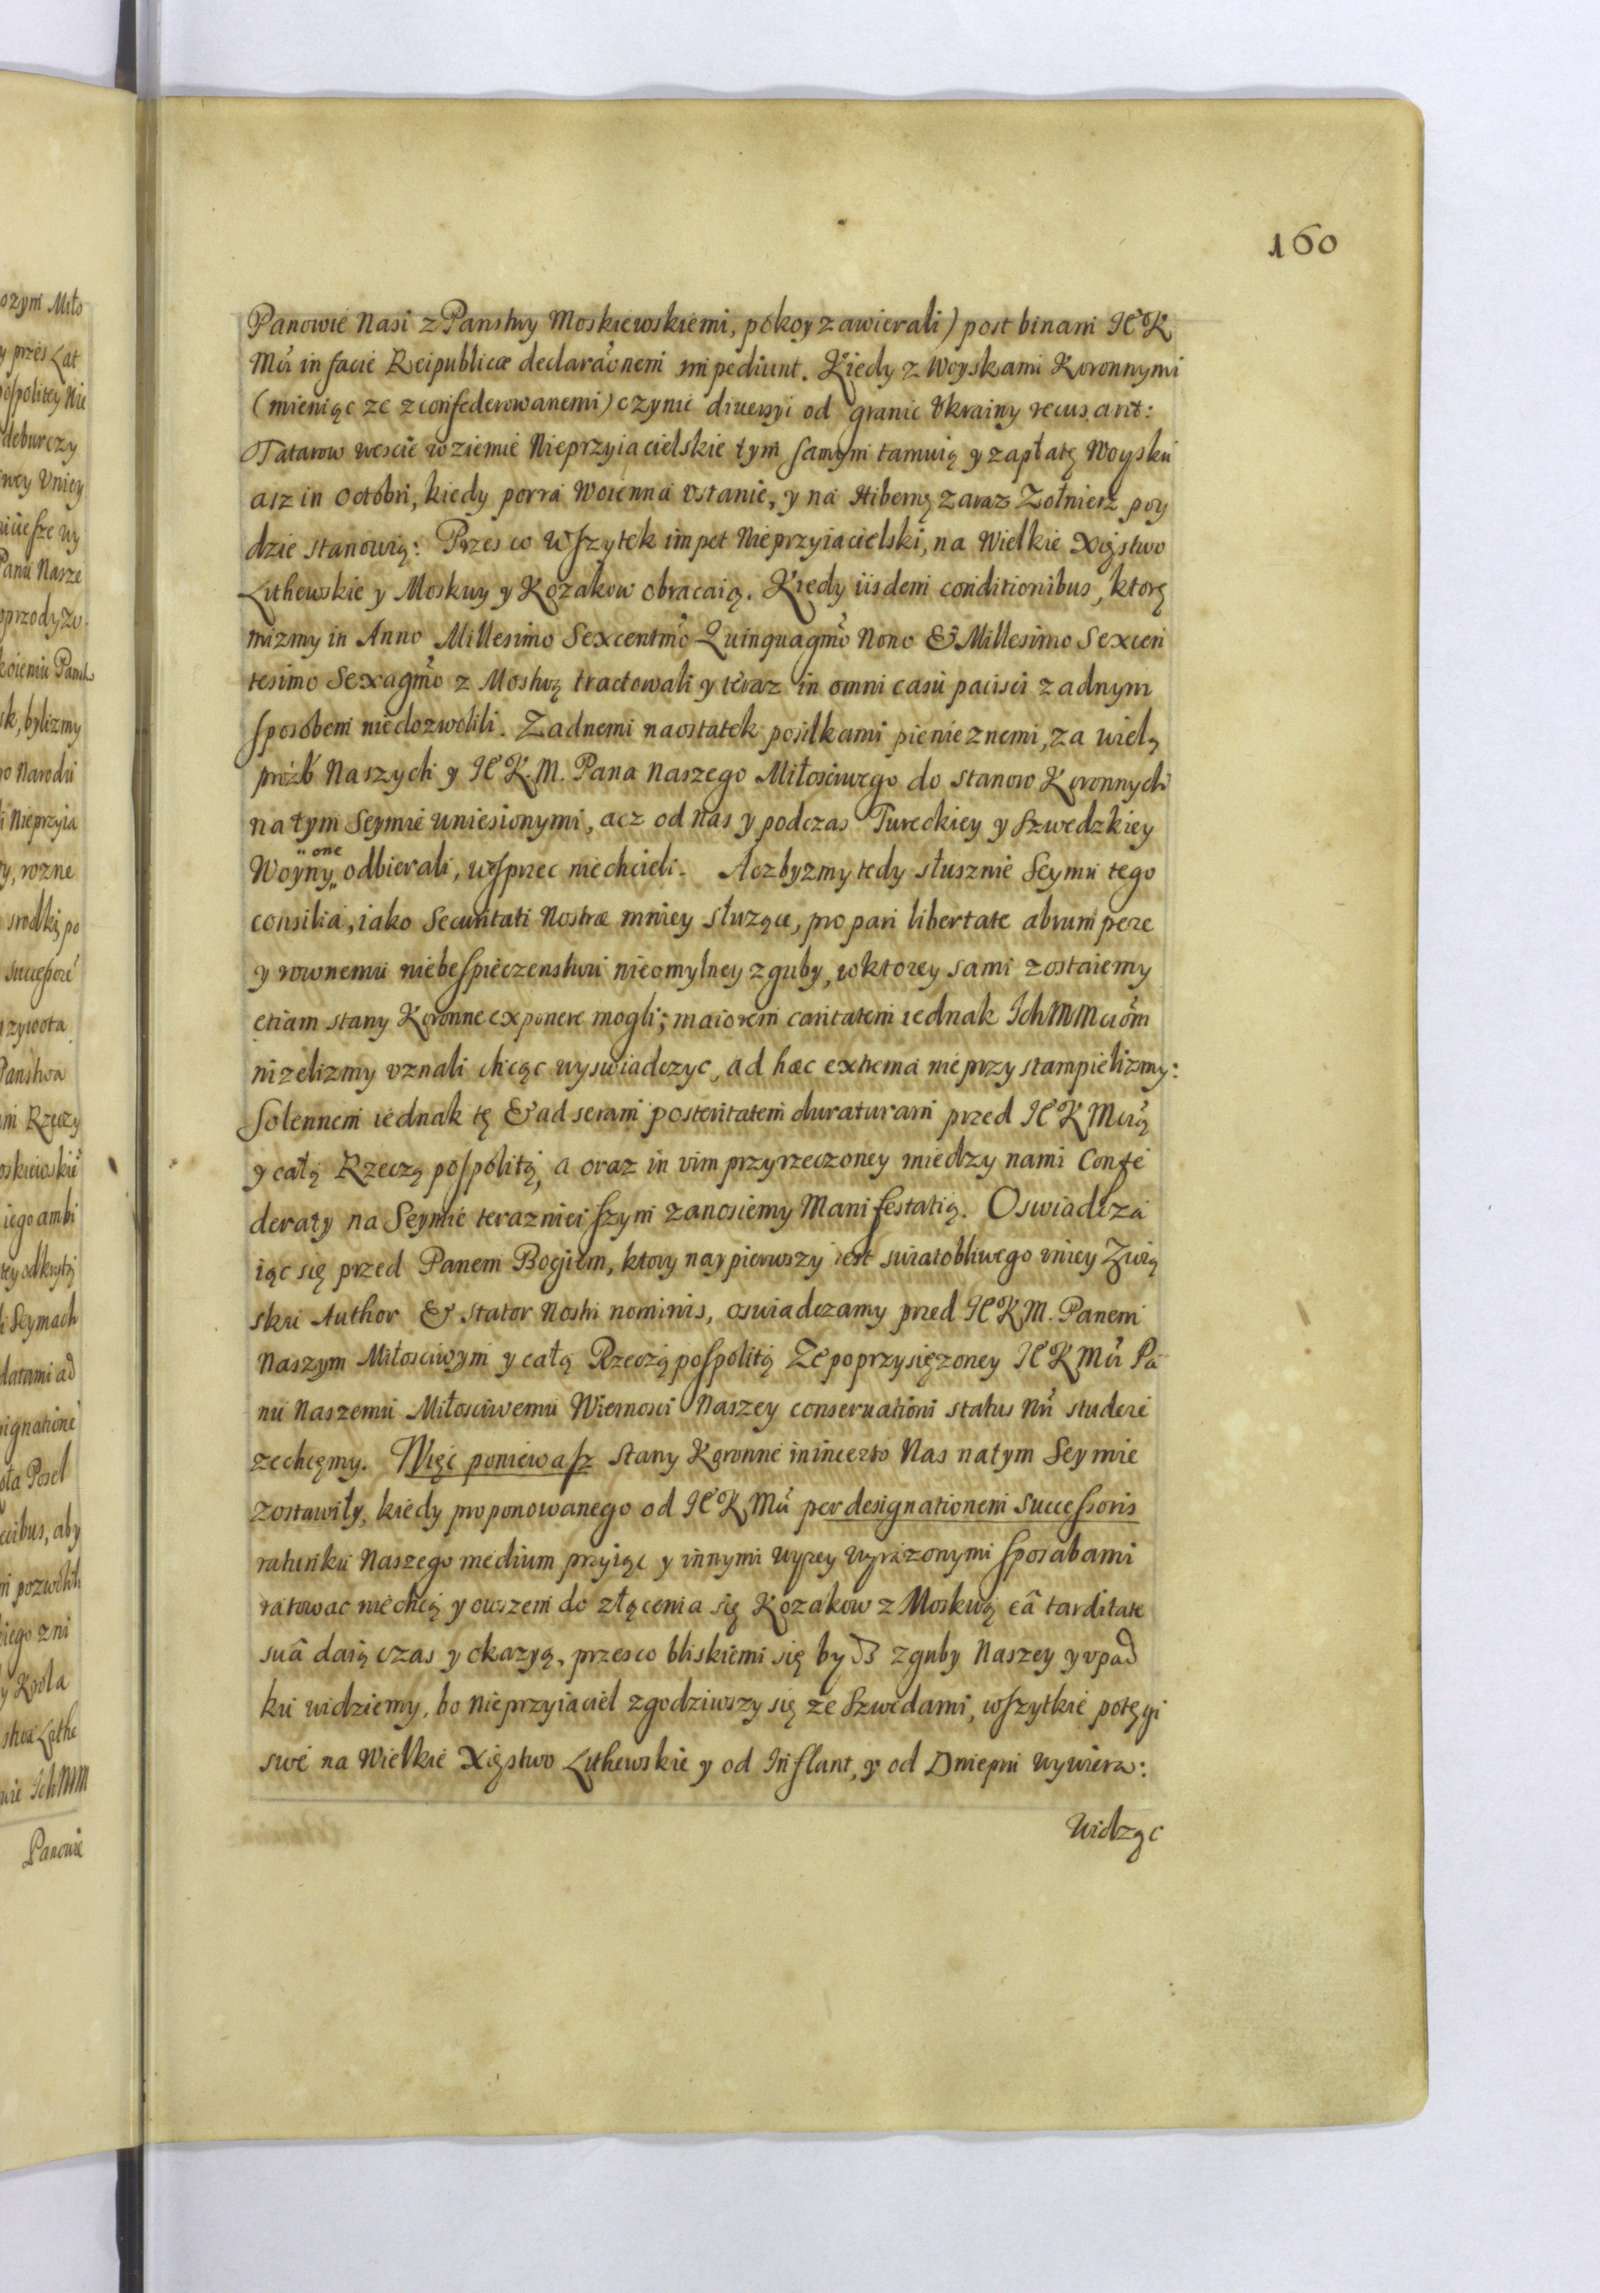 160
Panowie Nasi z Panstwy Moskiewskiemi, pokoy zawierali) post binam JE K
Mci in facie Reipublicæ declaraõnem impediunt. Kiedy z Woyskami Koronnymi
(mieniąc ze zconfederowanemi) czynic diuersyi od granic Vkrainy recusant:
Tatarow wescie wziemie Nieprzyiacielskie tym samym tamuią y zapłatę Woysku
asz in Octobri, kiedy porra Woienna vstanie, y na Hibernę zaraz Zołnierz poy
dzie stanowią: Przesco wszytek impet Nieprzyiacielski, na Wielkie Xięstwo
Lithewskie y Moskwy y Kozakow obracaią. Kiedy iisdem conditionibus, ktorę
mizmy in Anno Millesimo Sexcentmo Quinquagmo Nono & Millesimo Sexcen
tesimo Sexagmo z Moskwą tractowali y teraz in omni casu pacisci zadnym
sposobem niedozwolili. Zadnemi naostatek posiłkami pienieznemi, za wielą
prozb Naszych y JE K. M. Pana Naszego Miłosciwego do stanow Koronnych
na tym Seymie uniesionymi, acz od nas y podczas Tureckiey y Szwedzkiey
Woyny one odbierali, wesprzec niechcieli. Aczbyzmy tedy słusznie Seymu tego
consilia, iako Securitati Nostræ mniey słuzące, pro pari libertate abrumpere
y rownemu niebespieczenstwu nieomylney zguby, wktorey sami zostaiemy
etiam stany Koronne exponere mogli; maiorem caritatem iednak Ich MM ciom
nizelizmy vznali chcąc wyswiadczyc, ad hæc extrema nieprzystampielizmy:
Solennem iednak tę & ad seram posteritatem duraturam przed JE K Mcią
y całą Rzeczą pospolitą, a oraz in vim przyrzeczoney miedzy nami Confe
deraty na Seymie terazniejszym zanosiemy Manifestatią. Oswiadcza
iąc się przed Panem Bogiem, ktory naypierwszy iest swiatobliwego vniey Zwią
sku Author & Stator Nostri nominis, oswiadczamy przed JE K M. Panem
Naszym Miłosciwym y całą Rzeczą pospolitą Ze poprzysięzoney JE K Mci Pa
nu Naszemu Miłosciwemu Wiernosci Naszey conseruationi status nri studere
zechcęmy. Więc poniewasz stany Koronne inincerto Nas natym Seymie
zostawiły, kiedy proponowanego od JE K Mci per designationem successoris
ratunku Naszego medium przyiąc y innymi wyzey wyrazonymi sposabami
ratowac niechcą y owszem do złącenia się Kozakow z Moskwą eâ tarditate
suâ daią czas y okazyą, przesco bliskiemi się bydź zguby Naszey y vpad
ku widziemy, bo nieprzyiaciel zgodziwszy się ze Szwedami, wszytkie potęgi
swe na Wielkie Xięstwo Lithewskie y od Inflant, y od Dniepru wywiera:
Widząc